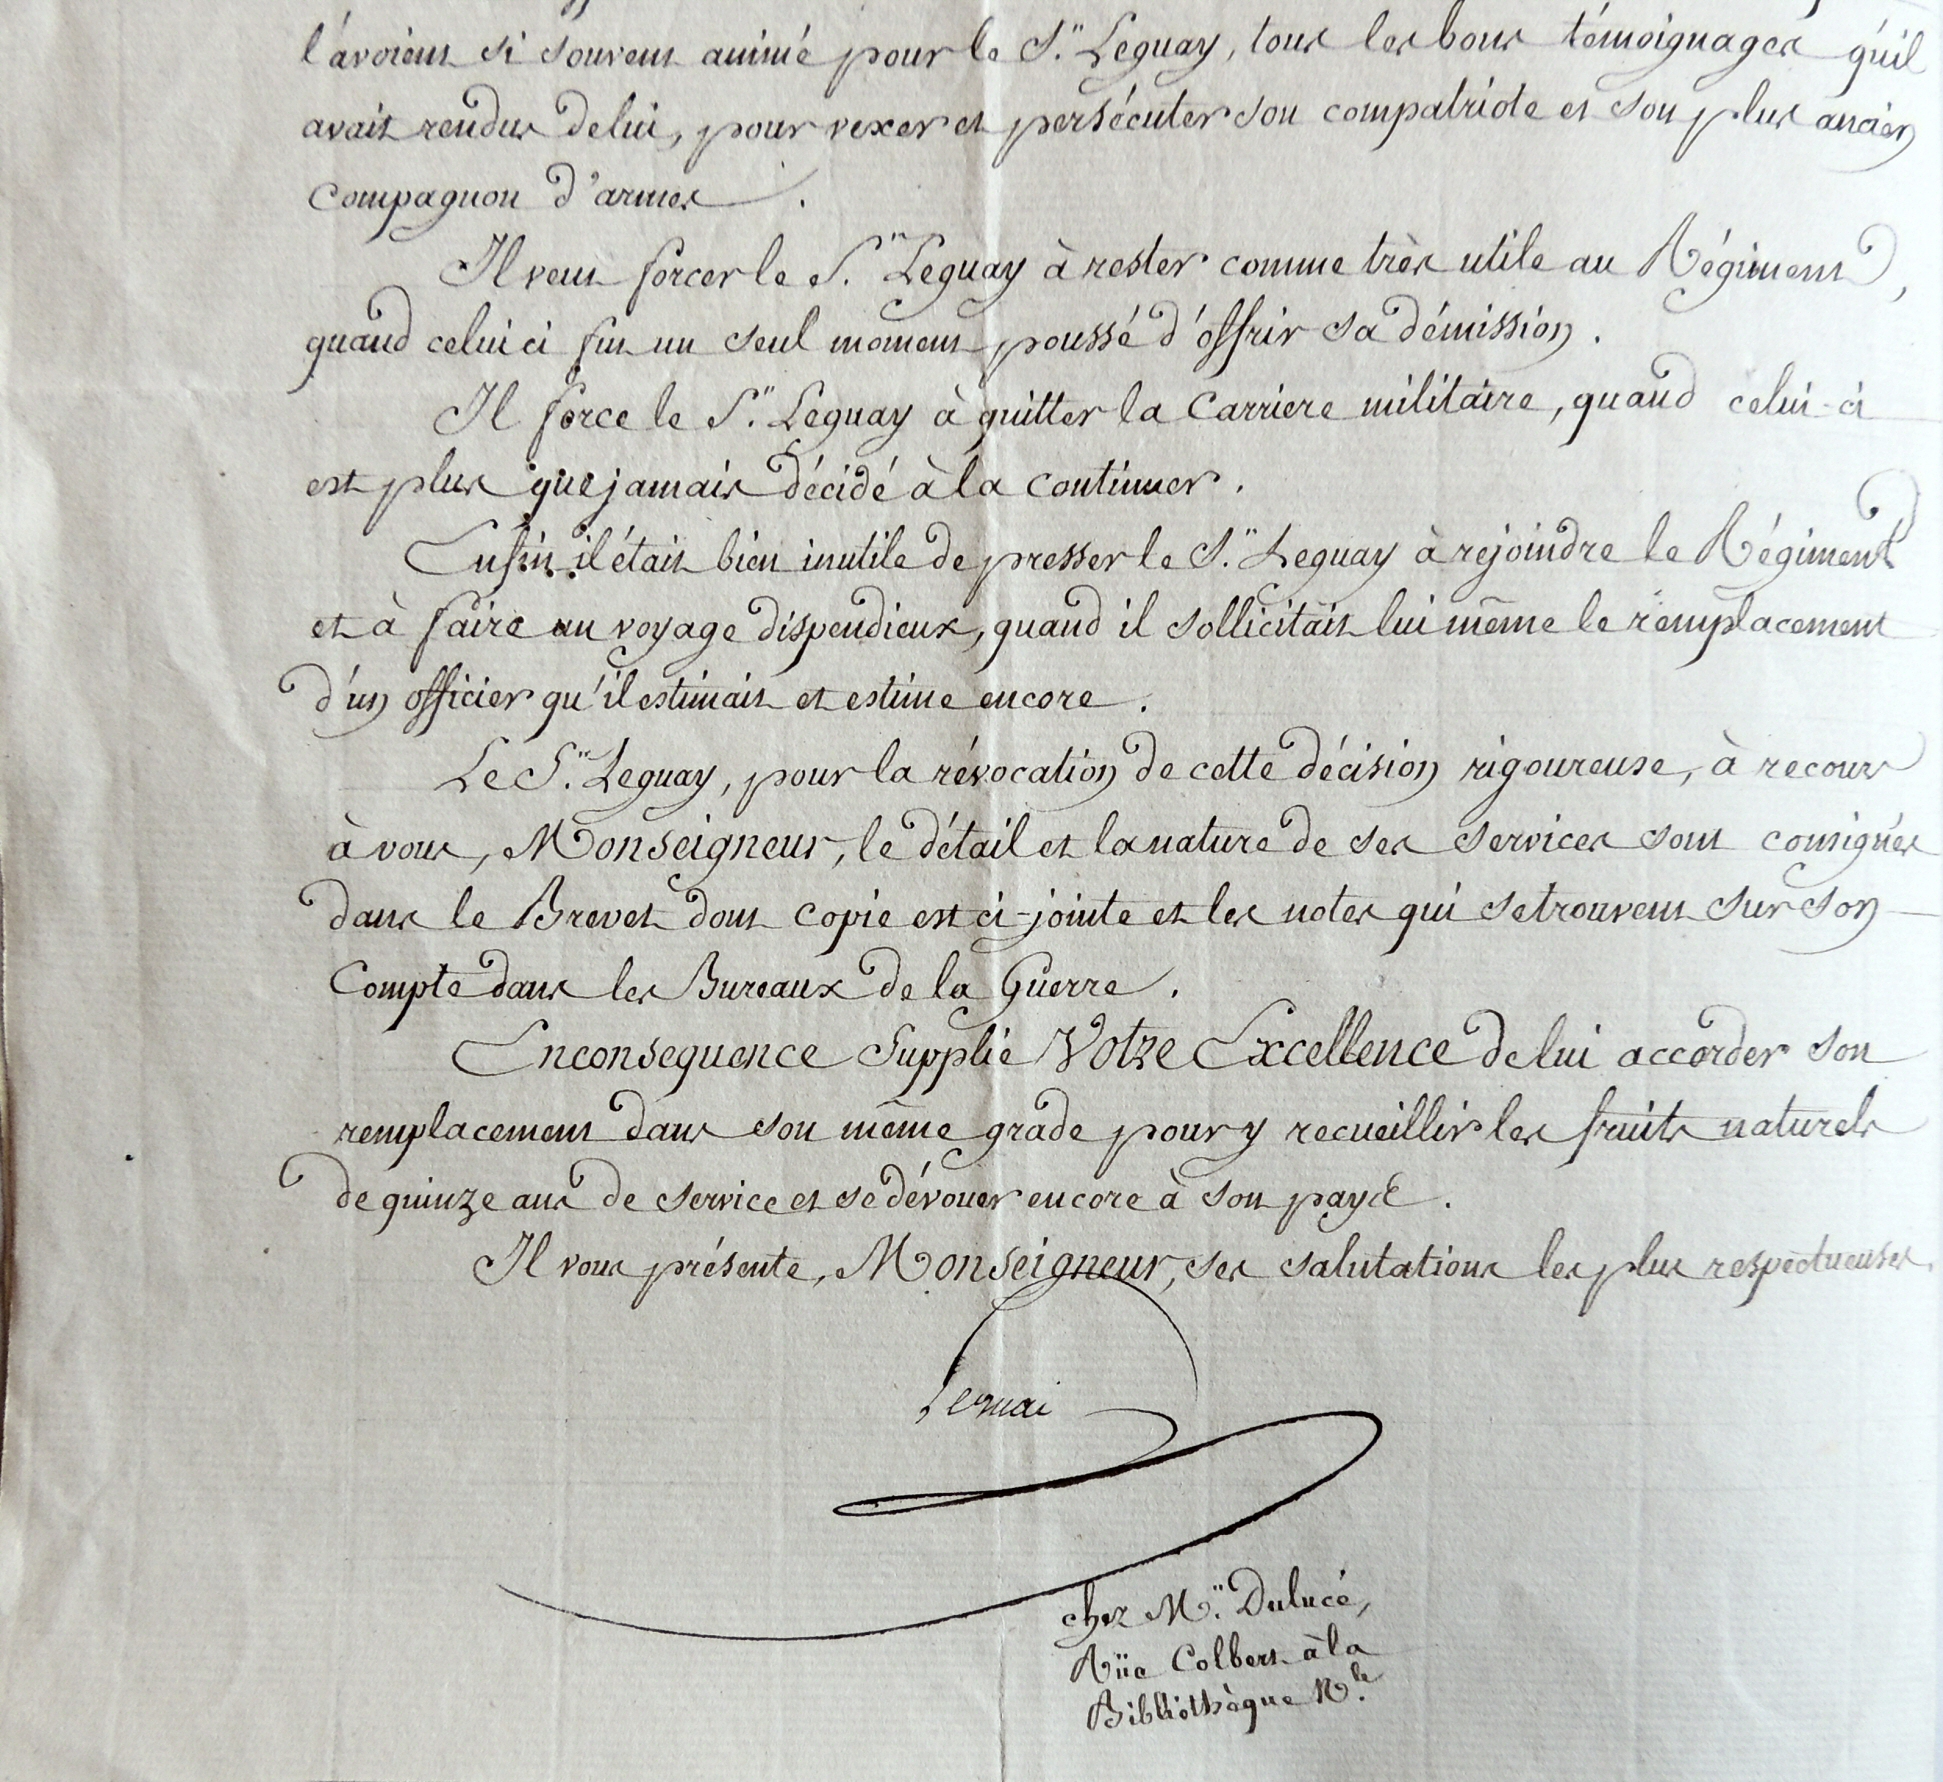 l'avoient si souvent animé pour le S.r Leguay, tous les bons témoignages qu'il
avait rendus de lui, pour vexer et persécuter son compatriote et son plus ancien
Compagnon d'armes.
Il veut forcer le S.r Leguay à rester comme très utile au Régiment,
quand celui ci fut un seul moment poussé d'offrir sa démission.
Il force le S.r Leguay à quitter la Carriere militaire, quand celui-ci
est plus que jamais décidé à la continuer.
Enfin il était bien inutile de presser le S.r Leguay à rejoindre le Régiment
et à faire un voyage dispendieux, quand il sollicitait lui même le remplacement
d'un officier qu'il estimait et estime encore.
Le S.r Leguay, pour la révocation de cette décision rigoureuse, à recours
à vous, Monseigneur, le détail et la nature de ses services sont consignés
dans le Brevet dont copie est ci-jointe et les notes qui se trouvent sur son
Compte dans les Bureaux de la Guerre.
En consequence Supplie Votre Excellence de lui accorder son
remplacement dans son même grade pour y recueillir les fruits naturels
de quinze ans de service et se dévouer encore à son pays.
Il vous présente, Monseigneur, ses salutations les plus respectueuses.
chez M.r Dulucé,
Rüe Colbert à la
Bibliothèque N.le